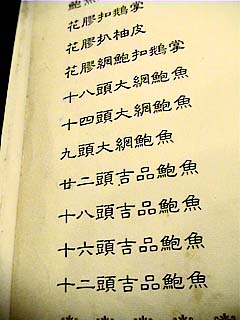 花膠扣鵝掌
花膠扒柚皮
花膠網鮑扣鵝掌
十八頭大網鮑魚
十四頭大網鮑魚
九頭大網鮑魚
廿二頭吉品鮑魚
十八頭吉品鮑魚
十六頭吉品鮑魚
十二頭吉品鮑魚